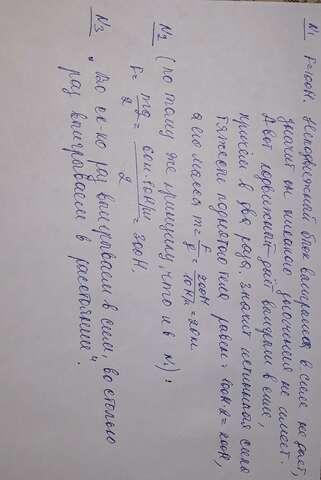 N1 F=100H. Неподвижный блок выигрыша в силе не даёт,
значит он никакого значения не имеет.
А вот подвижный даёт выигрыш в силе,
причём в два раза, значит истинная сила
тяжести поднятого тела равен: 100H·2=200H,
а его масса m = F/g = 200H / 10H/кг = 20кг
N2 (по тому же принципу, что и в N1):
F = mg/2 = 60кг·10H/кг / 2 = 300H.
N3
"Во ск-ко раз выигрываем в силе, во столько
раз выигрываем в расстоянии".